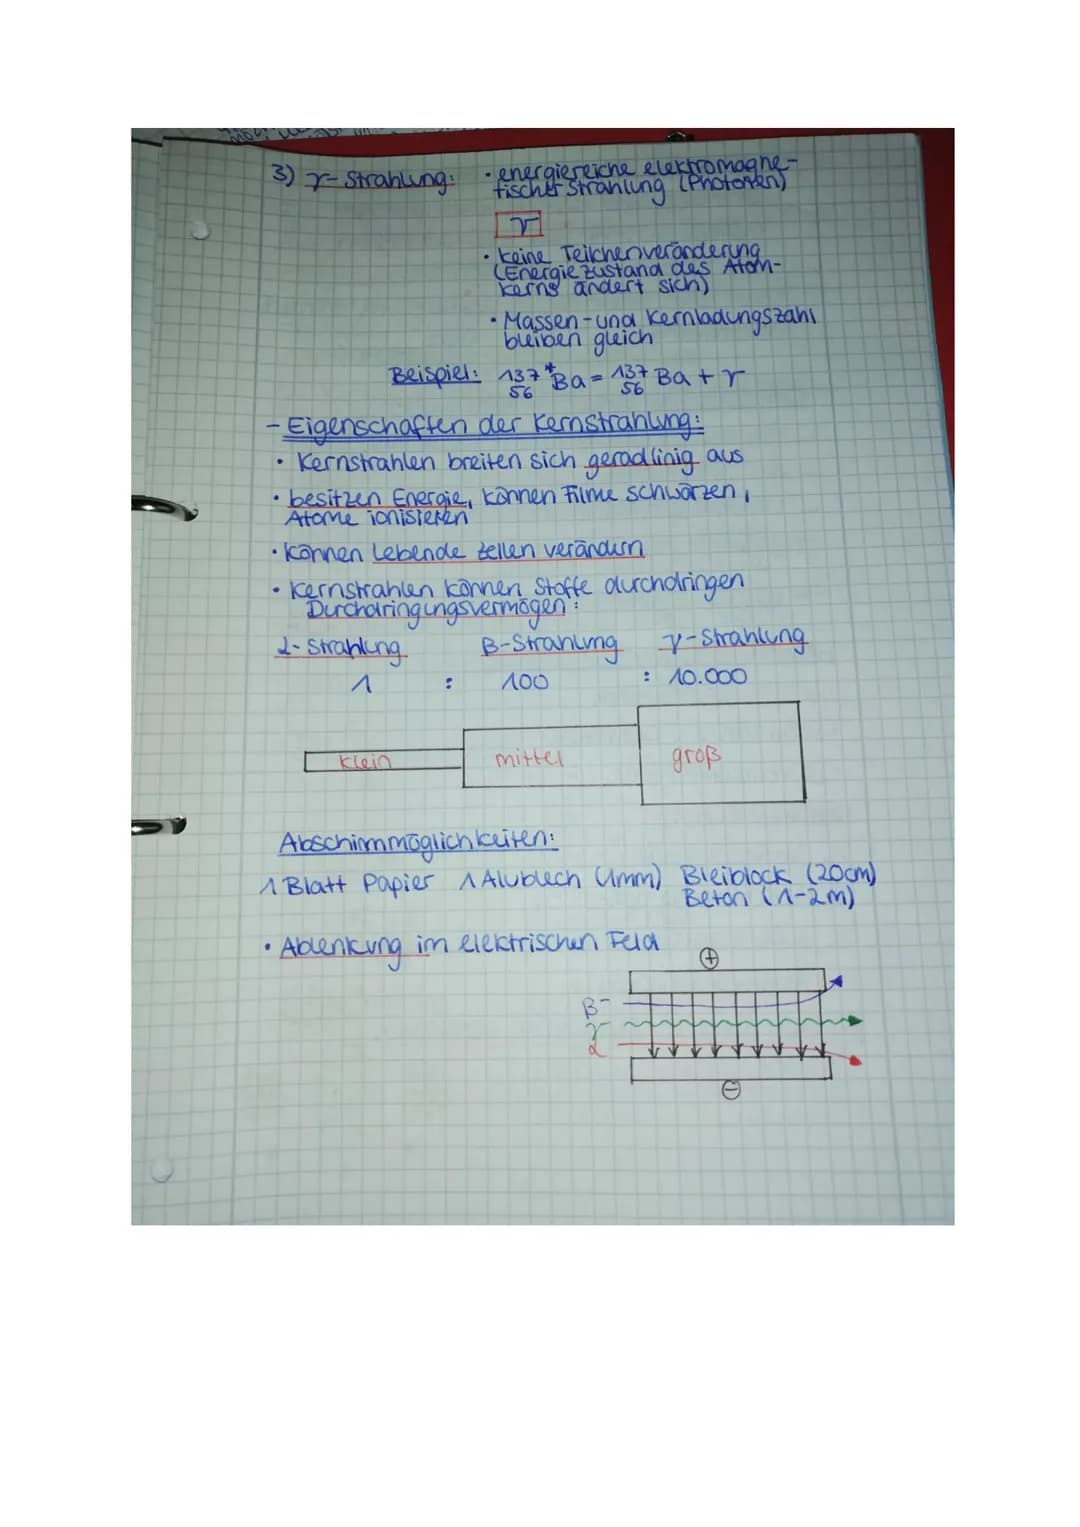 3) γ-Strahlung: • energiereiche elektromagne-
tischer Strahlung (Photonen)
γ
• keine Teilchenveränderung
(Energiezustand des Atom-
kerns ändert sich)
• Massen- und Kernladungszahl
bleiben gleich
Beispiel: ¹³⁷₅₆*Ba = ¹³⁷₅₆Ba + γ
- Eigenschaften der Kernstrahlung:
• Kernstrahlen breiten sich geradlinig aus
• besitzen Energie, können Filme schwärzen,
Atome ionisieren
• können Lebende Zellen verändern
• Kernstrahlen können Stoffe durchdringen
Durchdringungsvermögen:
α-Strahlung β-Strahlung γ-Strahlung
1 : 100 : 10.000
klein mittel groß
Abschirmmöglichkeiten:
1 Blatt Papier 1 Alublech (1mm) Bleiblock (20cm)
Beton (1-2m)
• Ablenkung im elektrischen Feld
+
β-
γ
α
-